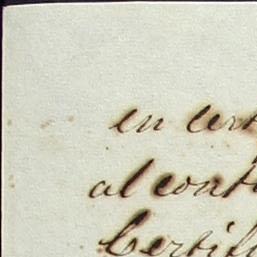 en cert
al cont
Certif